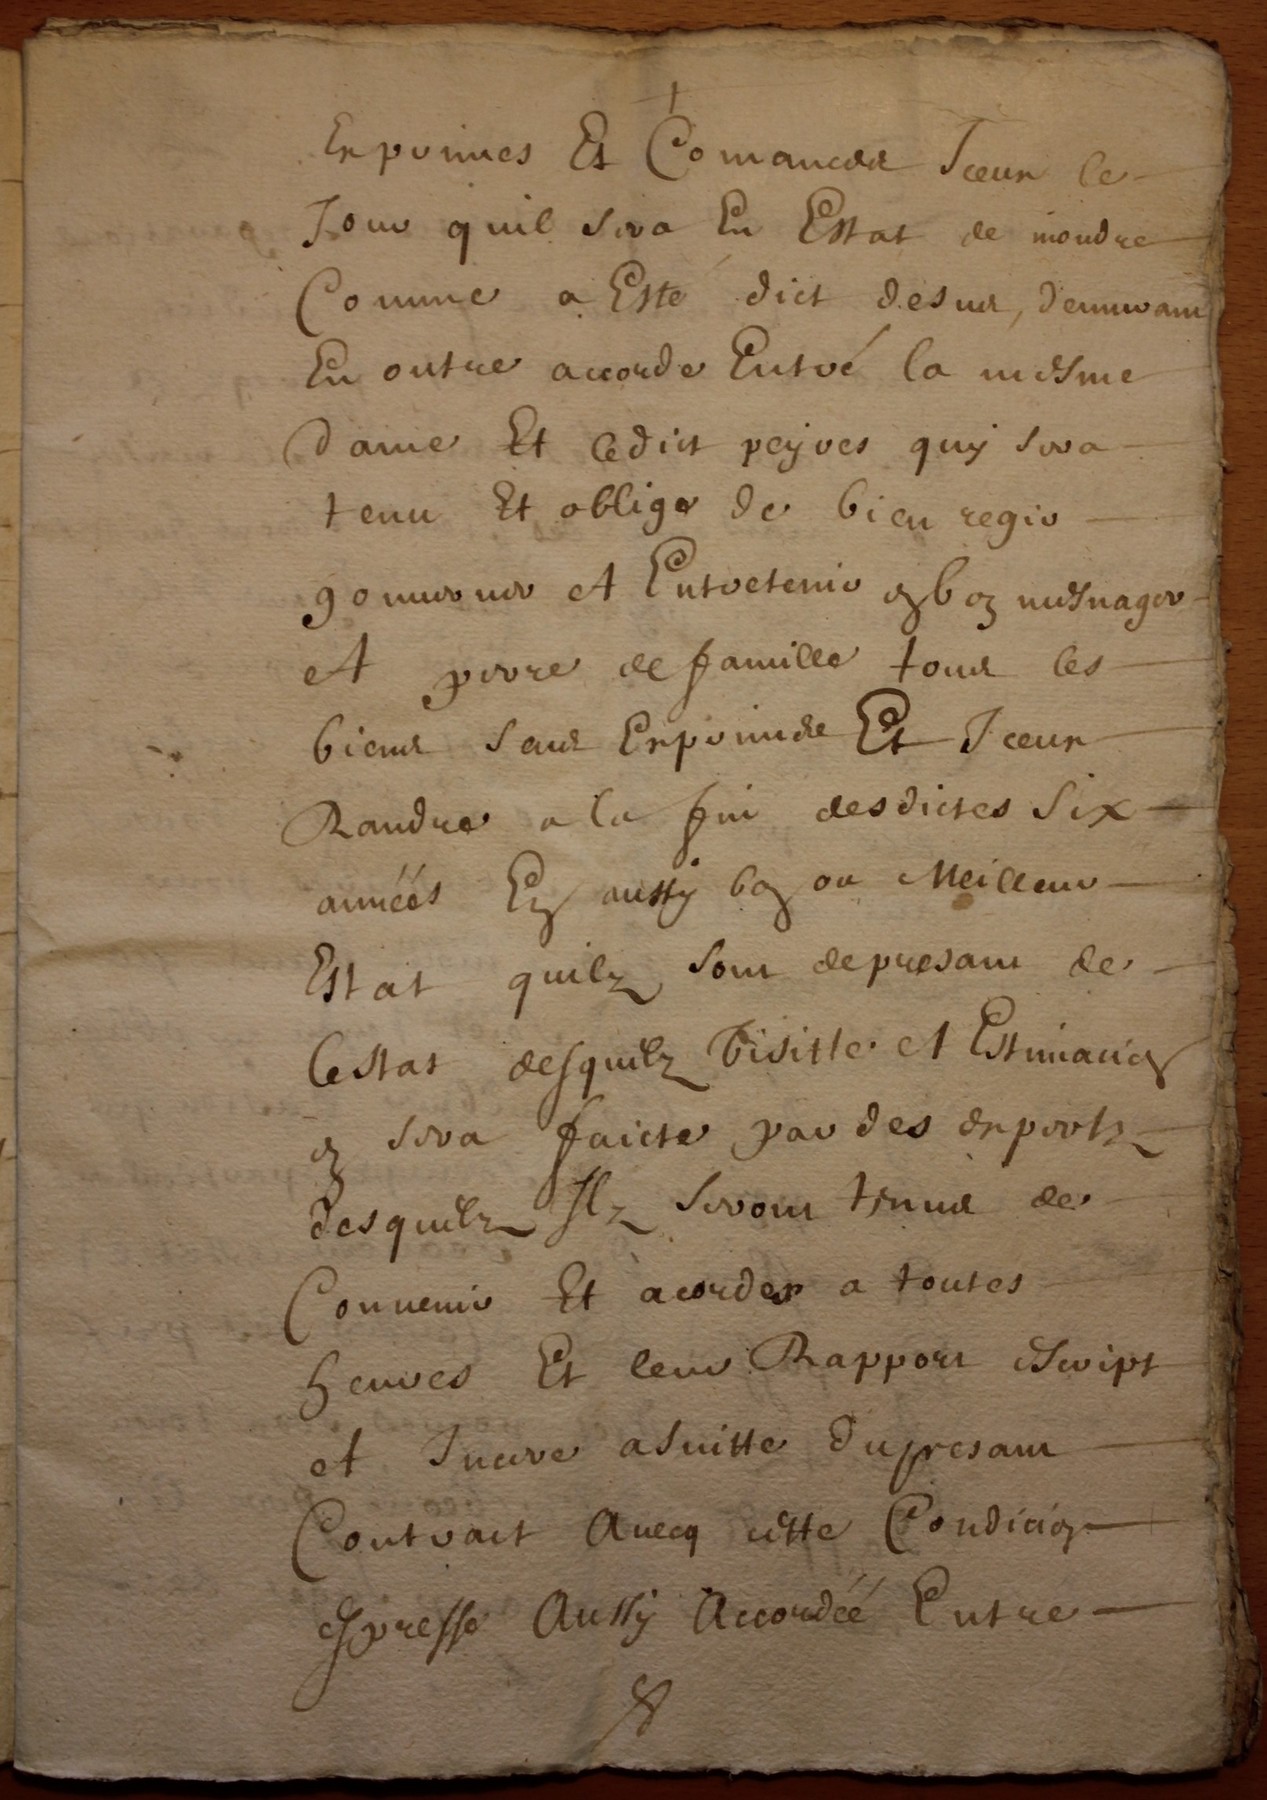 Exprimes Et Comancer Iceux le
Jour quil sera En Estat de moudre
Comme a Esté dict desus, demurant
En outre accorde Entré la mesme
Dame Et ledict peyres quy sera
tenu Et oblige de bien regir
gouuerner et Entretenir en bon mesnager
et perre de famille tous les
biens sans Exprimes Et Iceux
Randre a la fin desdictes Six
années En aussy bon ou Meilleur
Estat quilz sont depresant de
lestat desquelz Visitte et Estimation
en sera faicte par des expertz
desquelz Ilz seront tenus de
Conuenir Et acorder a toutes
heures Et leur Rapport escript
et Incere asuitte dupresant
Contract Auecq cette Condicion
expresse Aussy Accordéé Entre